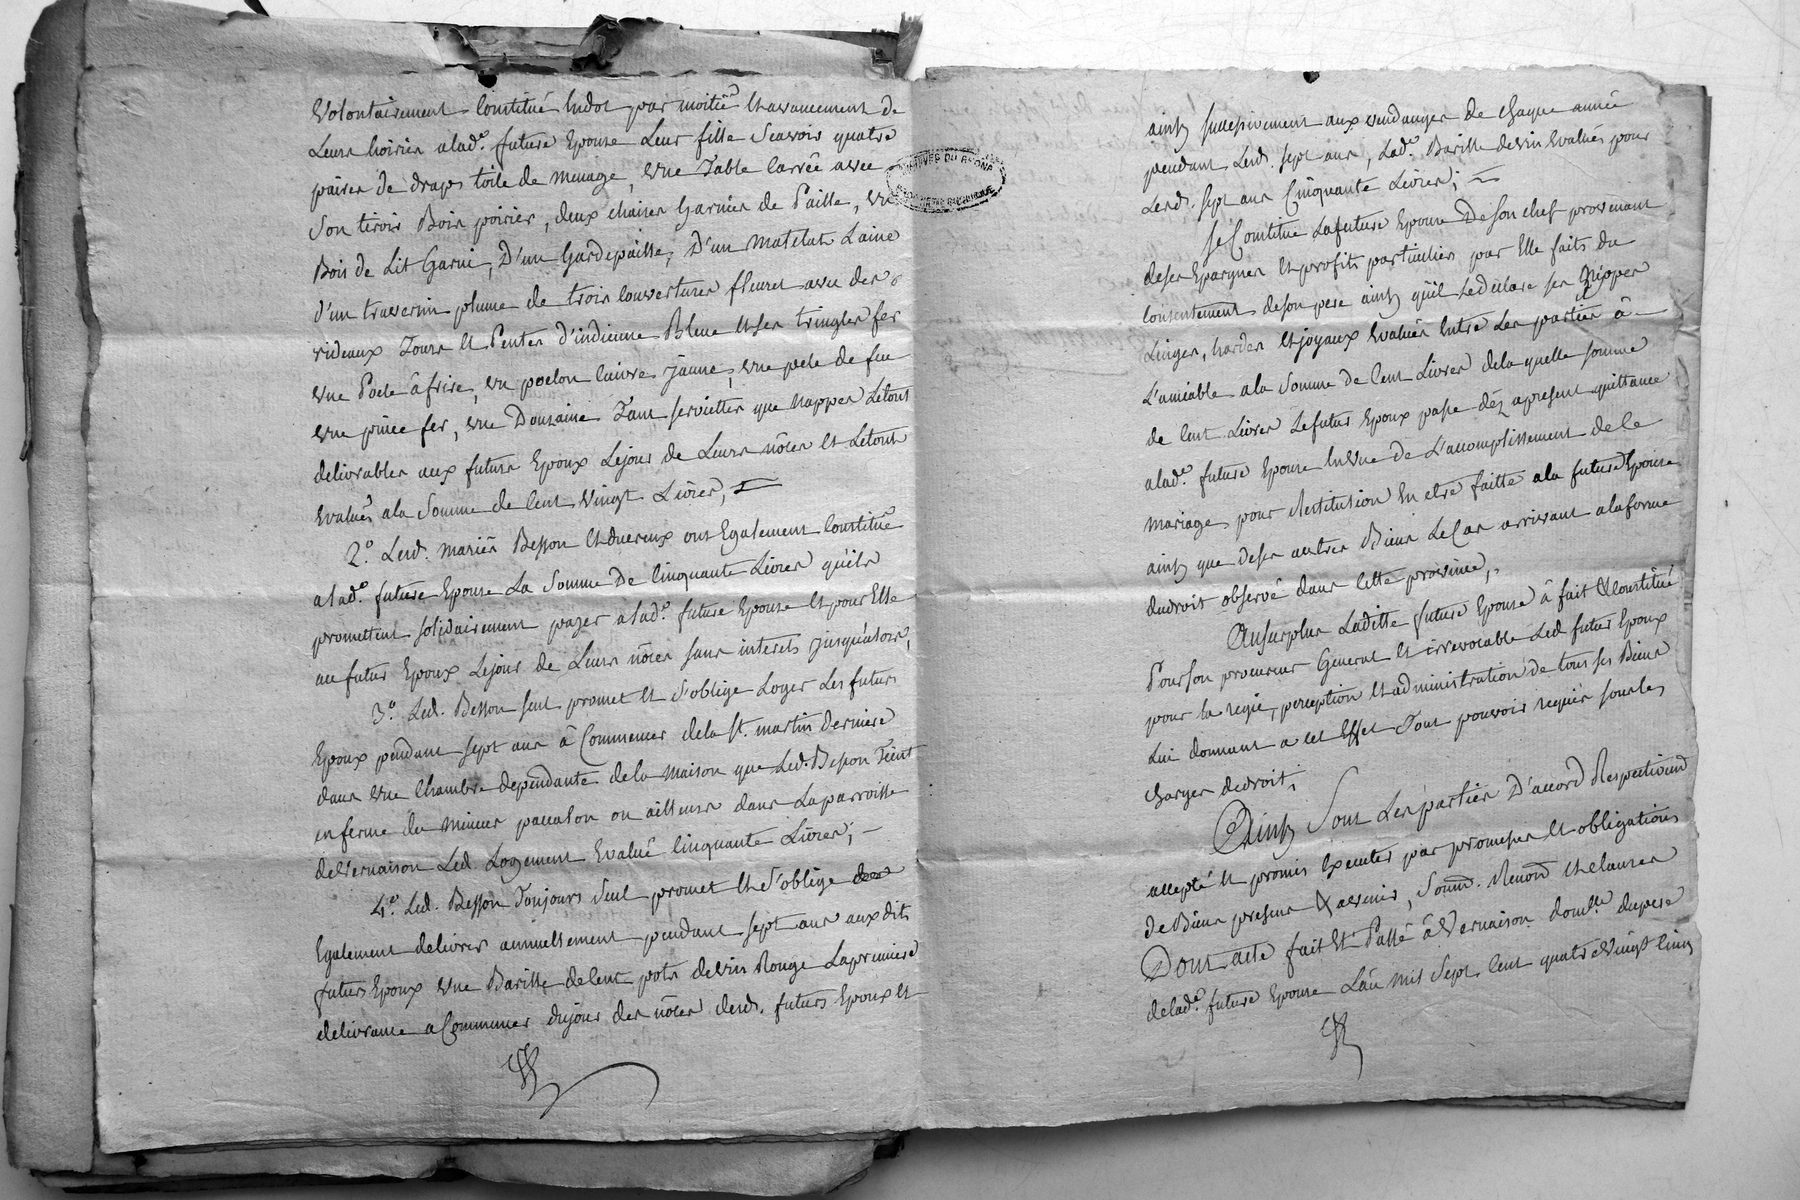 Volontairement Constitué En dot par moitié Et avancement de
Leurs hoiries a lad.e future Epouse Leur fille Scavoir quatre
paires de draps toile de menage, une Table Carrée avec
Son tiroir Bois poirier, deux chaises Garnies de Paille, un
Bois de Lit Garni, D'un Gardepaille, D'un Matelat Laine
d'un traversin plume de trois Couvertures fleuret avec des
rideaux Tours Et Pentes d'indienne Bleue Et Ses tringles fer
une Poele â frire, un poelon Cuivre jaune, une pele de feu
une pince fer, une Douzaine Tant serviettes que nappes Le tout
delivrables aux futurs Epoux Le jour de Leurs nôces Et Le tout
Evalués a la Somme de Cent Vingt Livres,
2.o Lesd. mariés Besson Et ont Egalement Constitué
a lad.e future Epouse La Somme De Cinquante Livres qu'ils
promettent solidairement payer a lad.e future Epouse Et pour Elle
au futur Epoux Le jour de Leurs nôces sans interets jusqu'alors,
3.o Led. Besson seul promet Et S'oblige Loger Les futurs
Epoux pendant sept ans â Commencer de la St. martin derniere
dans une Chambre dependante de la Maison que Led. Besson Tient
en ferme du Mineur ou ailleurs dans La parroisse
de Vernaison Led. Logement Evalué Cinquante Livres;
4.o Led. Besson Toujours Seul promet Et S'oblige
Egalement delivrer annuellement pendant sept ans aux dits
futurs Epoux une Barille de Cent pots de vin Rouge La premiere
delivrance a Commencer du jour des nôces desd. futurs Epoux Et
ARCHIVES DU RHONE
ainsy successivement aux vendanges de chaque année
pendant Lesd. sept ans, Lad.e Barille de vin Evaluée pour
Lesd. sept ans Cinquante Livres;
Se Constitue La future Epouse De Son chef provenant
de Ses Epargnes Et profits particuliers par Elle faits du
Consentement de Son pere ainsy qu'il Le declare Ses Nippes
Linges, hardes Et joyaux Evalués Entre Les parties â
L'amiable a la Somme de Cent Livres de la quelle somme
de Cent Livres Le futur Epoux passe dez apresent quittance
a lad.e future Epouse En vue de L'accomplissement de Ce
mariage pour Restitution En etre faitte a la future Epouse
ainsy que de Ses autres Biens Le Cas arrivant a la forme
du droit observé dans Cette province,
Au surplus Laditte future Epouse â fait & Constitué
Pour Son procureur General Et irrevocable Led. futur Epoux
pour La regie, perception Et administration de tous ses Biens
Lui donnant a cet Effet Tout pouvoir requis sous Les
charges de droit;
Ainsy Sont Les parties D'accord Respectivem.t
accepté Et promis Executer par promesses Et obligations
de Biens presens & avenir, Soum. Renonc. Et clauses
Dont acte fait Et Passé â Vernaison domille. du pere
de lad.e future Epouse L'an mil Sept Cent quatre Vingt Cinq